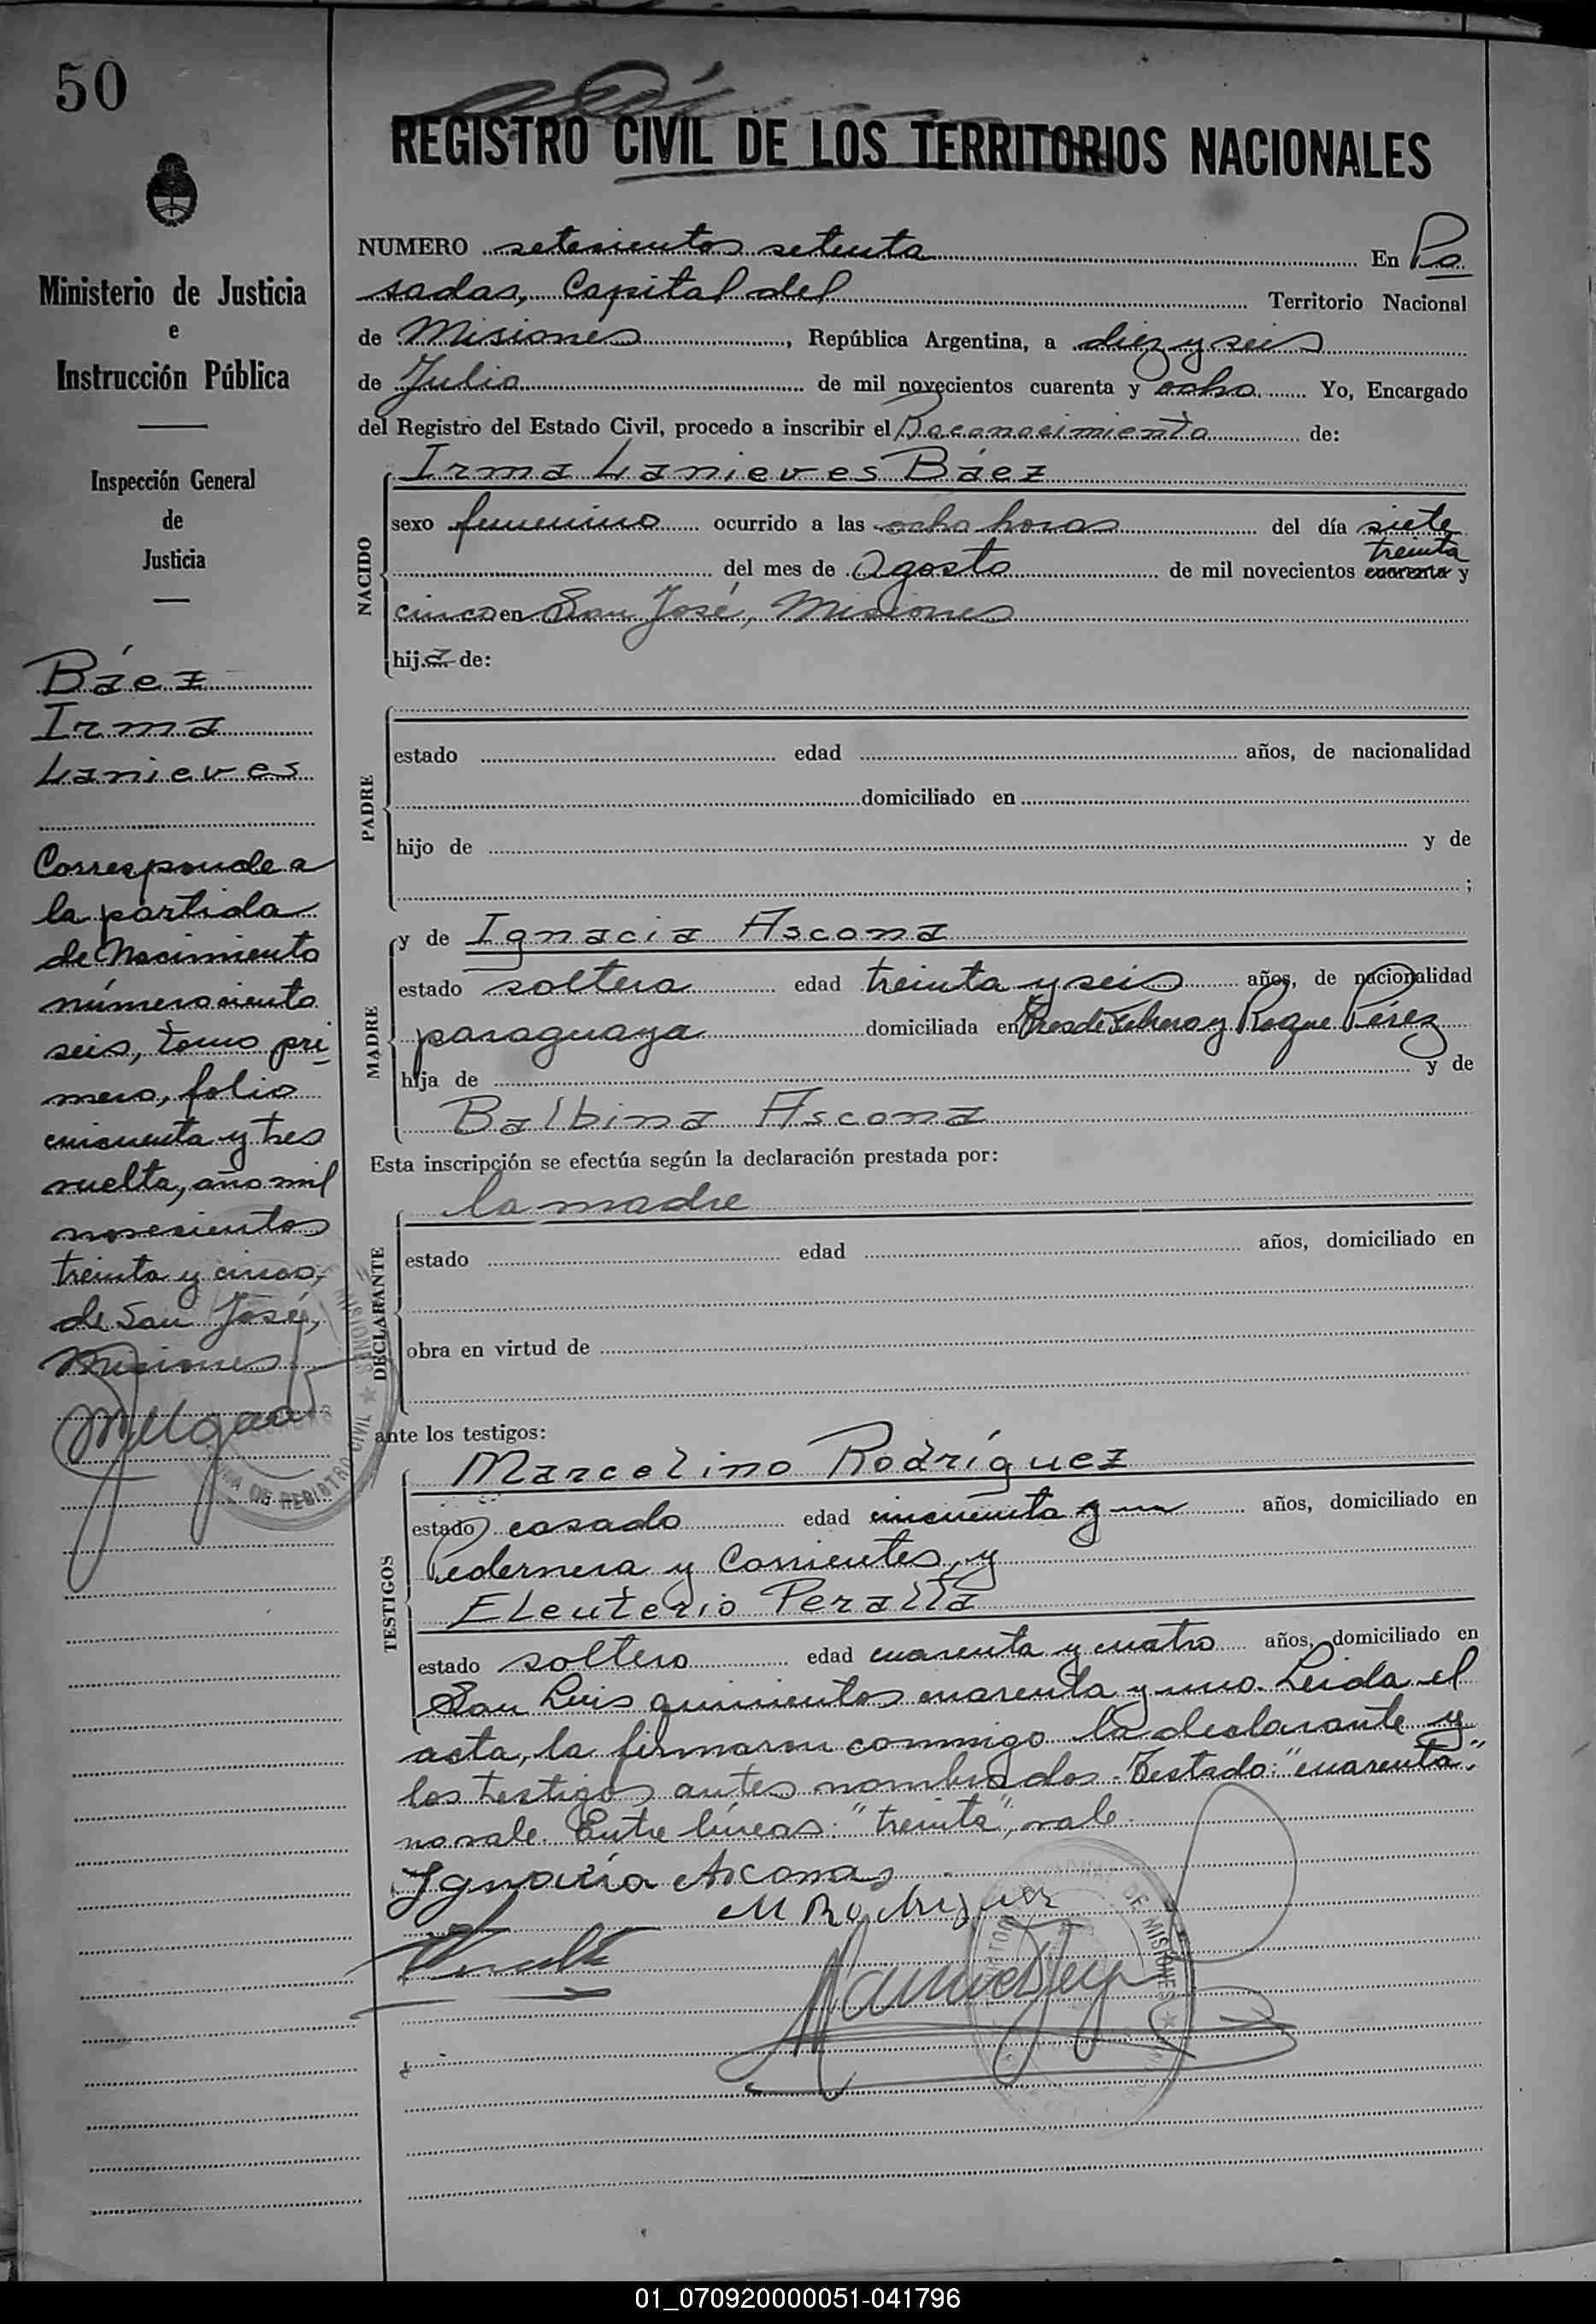 50
Ministerio de Justicia
e
Instrucción Pública
Inspección General
de
Justicia
Báez
Irma
Lanieves
Corresponde a
la partida
de Nacimiento
número ciento
seis, tomo pri
mero, folio
cincuenta y tres
vuelta, año mil
novecientos
treinta y cinco,
de San José,
Misiones
REGISTRO CIVIL DE LOS TERRITORIOS NACIONALES
NUMERO setecientos setenta En Po
sadas, Capital del Territorio Nacional
de Misiones, República Argentina, a diez y seis
de Julio de mil novecientos cuarenta y ocho Yo, Encargado
del Registro del Estado Civil, procedo a inscribir el Reconocimiento de:
NACIDO
Irma Lanieves Báez
sexo femenino ocurrido a las ocho horas del día siete
treinta
del mes de Agosto de mil novecientos cuarenta y
cinco en San José, Misiones
hija de:
PADRE
estado edad años, de nacionalidad
domiciliado en
hijo de y de
;
MADRE
y de Ignacia Ascona
estado soltera edad treinta y seis años, de nacionalidad
paraguaya domiciliada en Tres de Febrero y Roque Pérez
hija de y de
Balbina Ascona
Esta inscripción se efectúa según la declaración prestada por:
DECLARANTE
la madre
estado edad años, domiciliado en
obra en virtud de
ante los testigos:
TESTIGOS
Marcelino Rodríguez
estado casado edad cincuenta y un años, domiciliado en
Pedernera y Corrientes, y
Eleuterio Peralta
estado soltero edad cuarenta y cuatro años, domiciliado en
San Luis quinientos cuarenta y uno. Leida el
acta, la firmaron conmigo la declarante y
los testigos antes nombrados. Testado: "cuarenta":
no vale. Entre líneas: "treinta", vale.
Ignacia Ascona
M Rodriguez
DE MISIONES
01_070920000051-041796